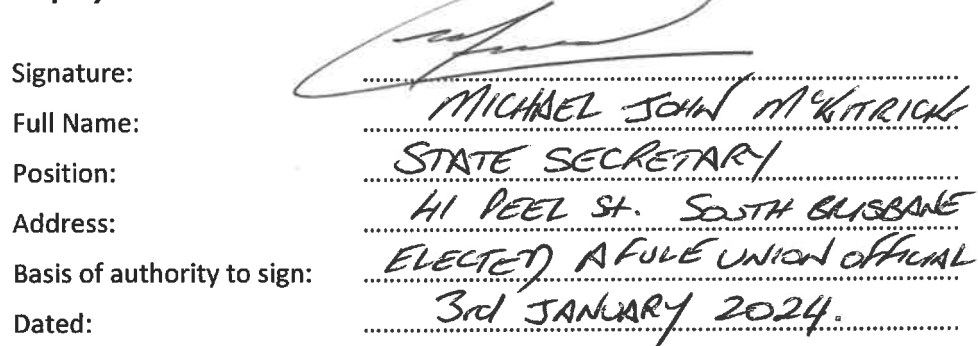 Signature:
Full Name: MICHAEL JOHN McKITRICK
Position: STATE SECRETARY
Address: 41 PEEL St. SOUTH BRISBANE
Basis of authority to sign: ELECTED AFULE UNION OFFICIAL
Dated: 3rd JANUARY 2024.